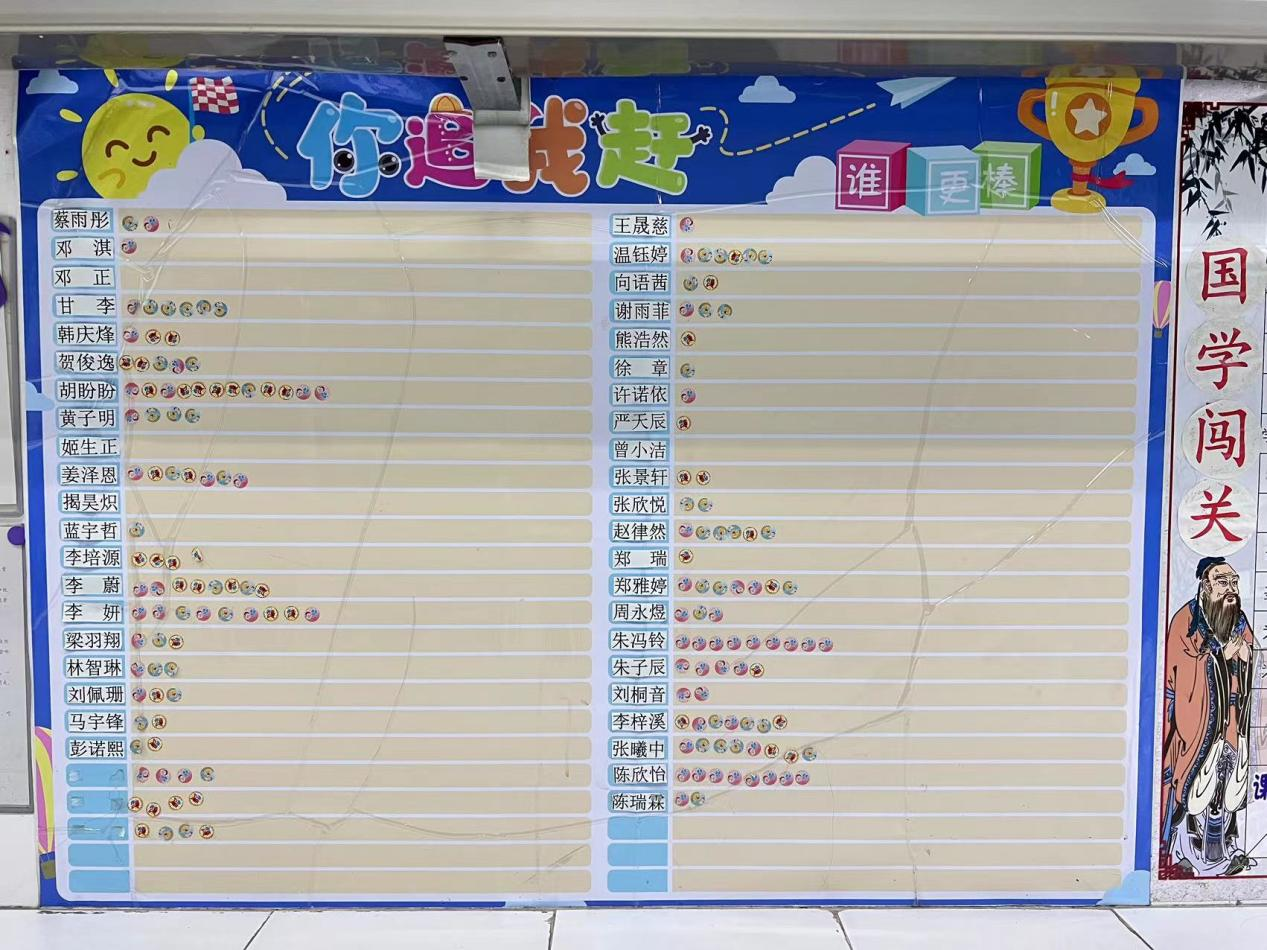 你追我赶
谁更棒
蔡雨彤
邓淇
邓正
甘李
韩庆烽
贺俊逸
胡盼盼
黄子明
姬生正
姜泽恩
揭昊炽
蓝宇哲
李培源
李蔚
李妍
梁羽翔
林智琳
刘佩珊
马宇锋
彭诺熙
王晟慈
温钰婷
向语茜
谢雨菲
熊浩然
徐章
许诺依
严天辰
曾小洁
张景轩
张欣悦
赵律然
郑瑞
郑雅婷
周永煜
朱冯铃
朱子辰
刘桐音
李梓溪
张曦中
陈欣怡
陈瑞霖
国学闯关